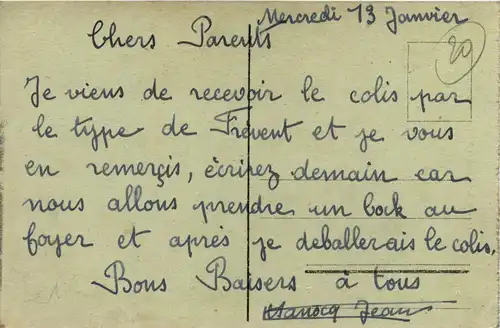 Mercredi 13 Janvier
20
Chers Parents
Je viens de recevoir le colis par
le type de Frévent et je vous
en remerçis, écrirez demain car
nous allons prendre un bock au
foyer et après je deballerais le colis.
Bons Baisers à tous
Jean